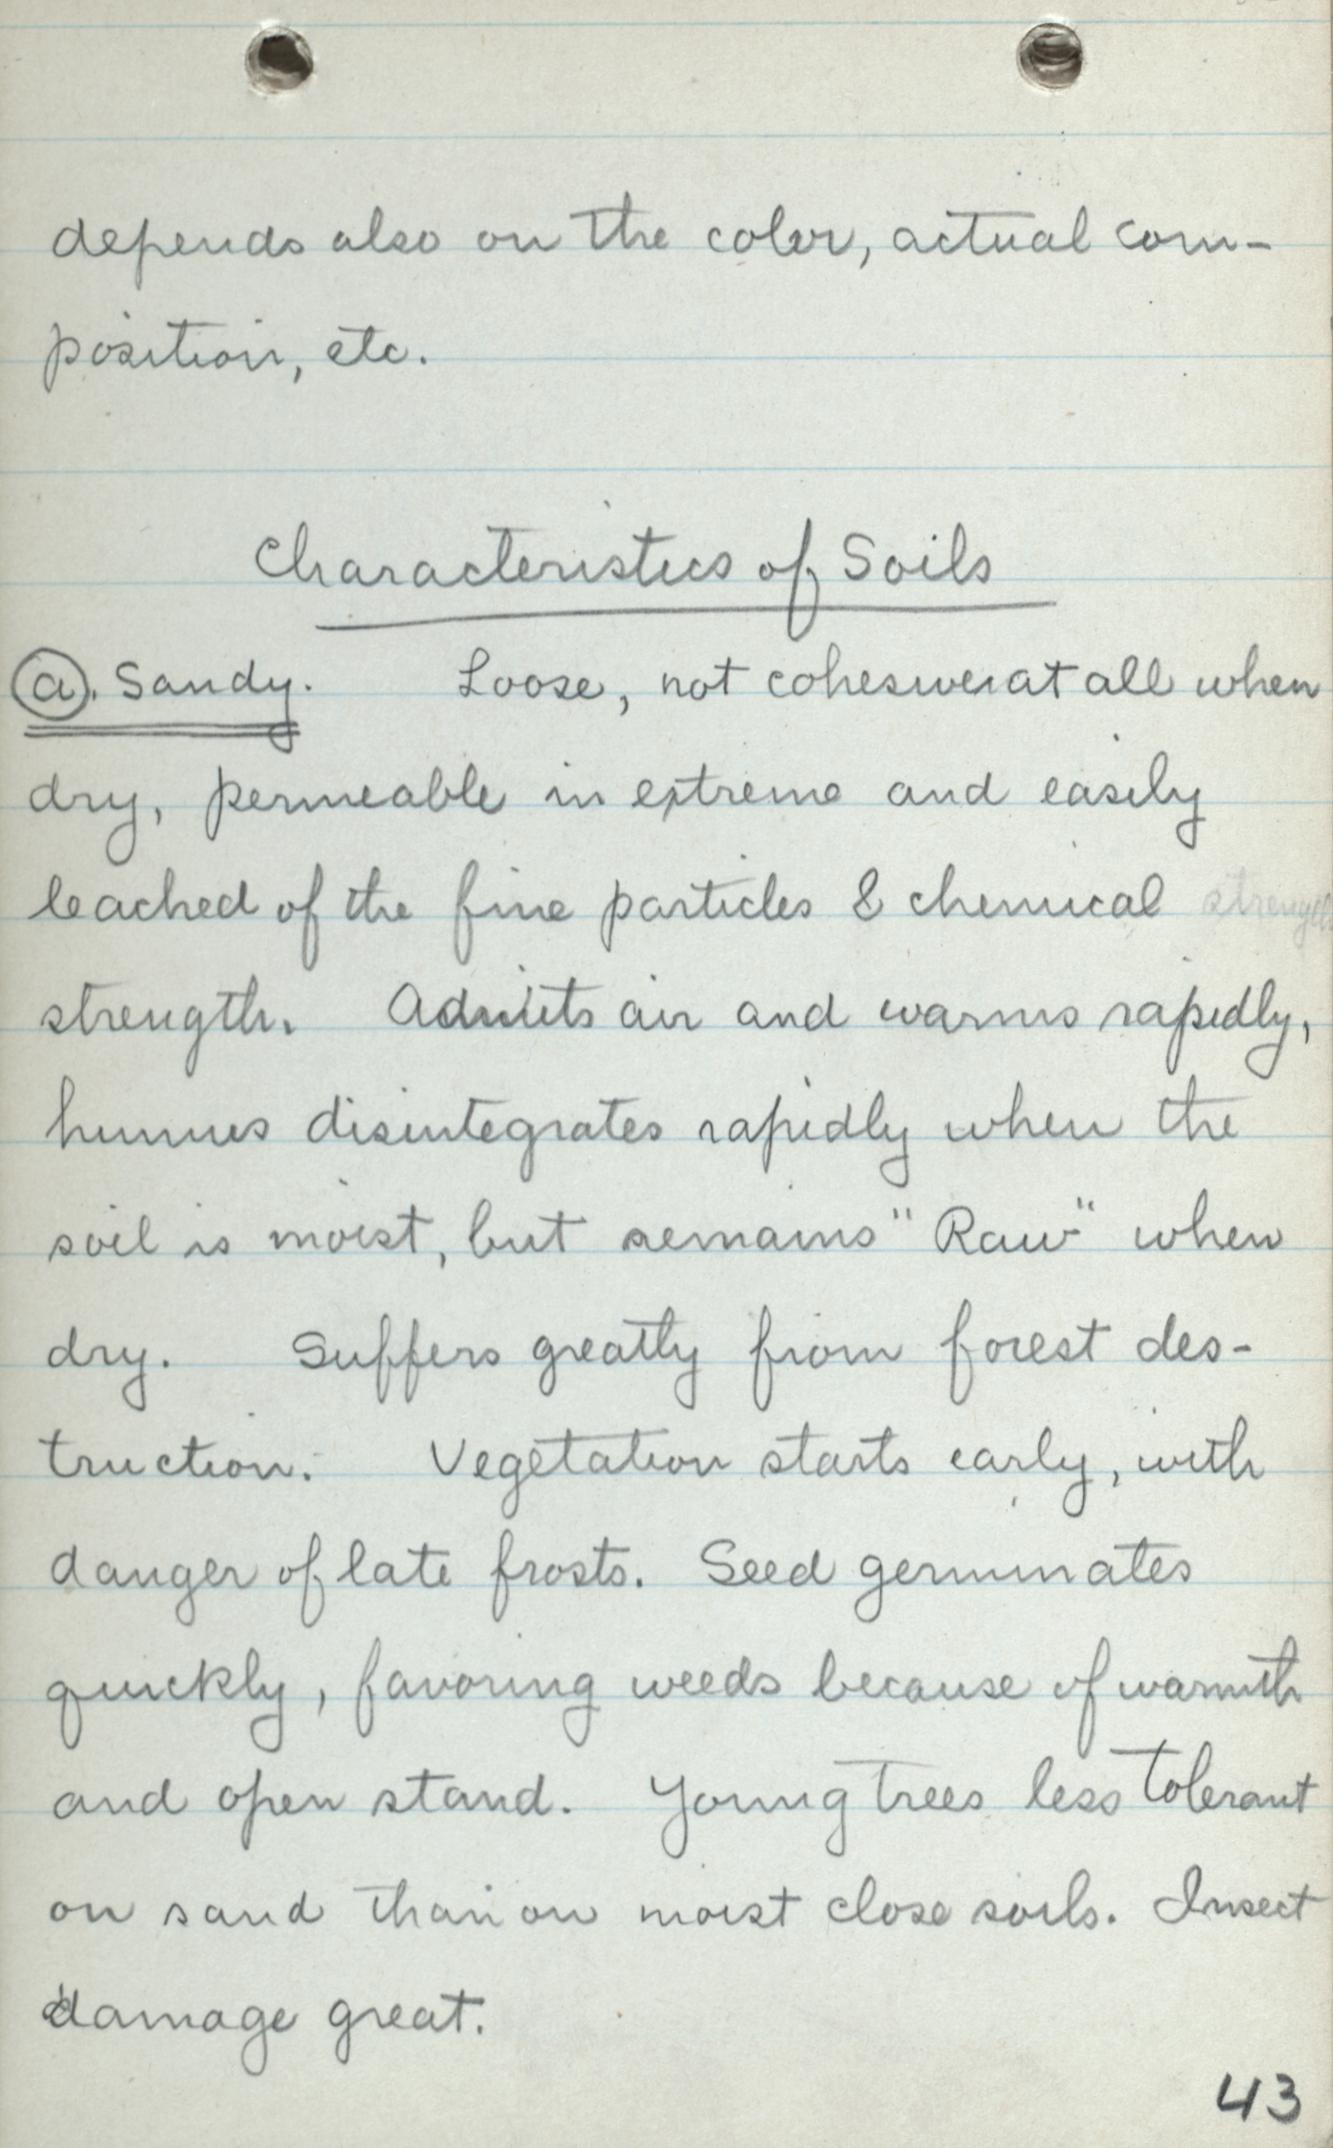 depends also on the color, actual com-
position, etc.
Characteristics of Soils
(a). Sandy. Loose, not cohesive at all when
dry, permeable in extreme and easily
leached of the fine particles & chemical strength
strength. Admits air and warms rapidly,
humus disintegrates rapidly when the
soil is moist, but remains "Raw" when
dry. Suffers greatly from forest des-
truction. Vegetation starts early, with
danger of late frosts. Seed germinates
quickly, favoring weeds because of warmth
and open stand. Young trees less tolerant
on sand than on moist close soils. Insect
damage great.
43